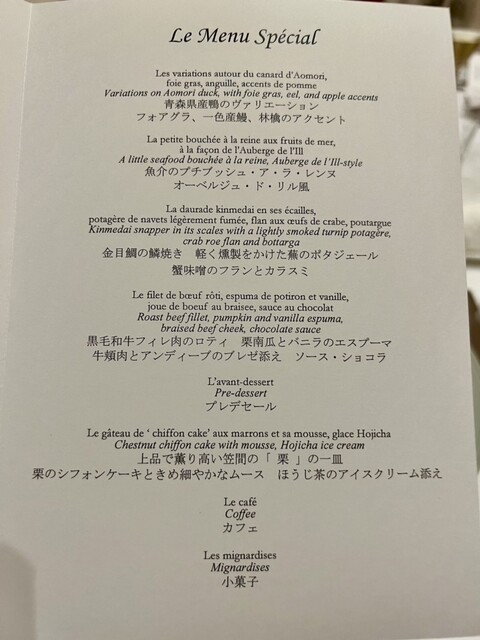 Le Menu Spécial
Les variations autour du canard d'Aomori,
foie gras, anguille, accents de pomme
Variations on Aomori duck, with foie gras, eel, and apple accents
青森県産鴨のヴァリエーション
フォアグラ、一色産鰻、林檎のアクセント
La petite bouchée à la reine aux fruits de mer,
à la façon de l'Auberge de l'Ill
A little seafood bouchée à la reine, Auberge de l'Ill-style
魚介のプチブッシュ・ア・ラ・レンヌ
オーベルジュ・ド・リル風
La daurade kinmedai en ses écailles,
potagère de navets légèrement fumée, flan aux œufs de crabe, poutargue
Kinmedai snapper in its scales with a lightly smoked turnip potagère,
crab roe flan and bottarga
金目鯛の鱗焼き 軽く燻製をかけた蕪のポタジェール
蟹味噌のフランとカラスミ
Le filet de bœuf rôti, espuma de potiron et vanille,
joue de boeuf au braisee, sauce au chocolat
Roast beef fillet, pumpkin and vanilla espuma,
braised beef cheek, chocolate sauce
黒毛和牛フィレ肉のロティ 栗南瓜とバニラのエスプーマ
牛頬肉とアンディーブのブレゼ添え ソース・ショコラ
L'avant-dessert
Pre-dessert
プレデセール
Le gâteau de ' chiffon cake' aux marrons et sa mousse, glace Hojicha
Chestnut chiffon cake with mousse, Hojicha ice cream
上品で薫り高い笠間の「 栗 」の一皿
栗のシフォンケーキときめ細やかなムース ほうじ茶のアイスクリーム添え
Le café
Coffee
カフェ
Les mignardises
Mignardises
小菓子